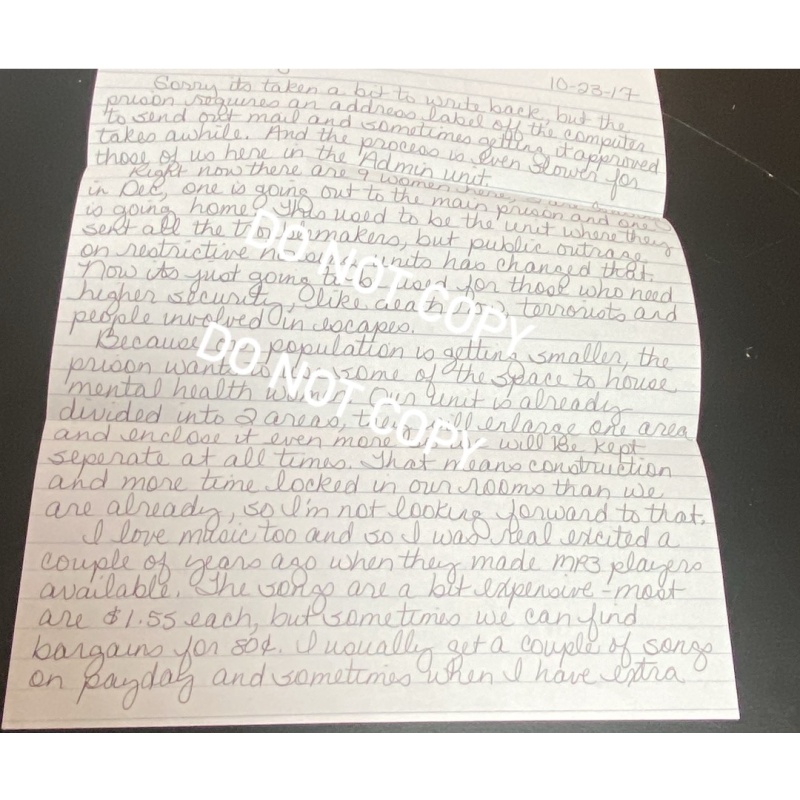 10-23-17
Sorry its taken a bit to write back, but the
prison requires an address label off the computer
to send out mail and sometimes getting it approved
takes awhile. And the process is even slower for
those of us here in the Admin unit.
Right now there are 9 women here,
in Dec, one is going out to the main prison and one
is going home. This used to be the unit where they
sent all the makers, but public outrage
on restrictive units has changed that.
Now its just going to be used for those who need
higher security, like death row, terrorists and
people involved in escapes.
Because population is getting smaller, the
prison wants some of the space to house
mental health Our unit is already
divided into 2 areas, they will enlarge one area
and enclose it even more will be kept
seperate at all times. That means construction
and more time locked in our rooms than we
are already, so I'm not looking forward to that.
I love music too and so I was real excited a
couple of years ago when they made MP3 players
available. The songs are a bit expensive - most
are $1.55 each, but sometimes we can find
bargains for 80¢. I usually get a couple of songs
on payday and sometimes when I have extra
DO NOT COPY
DO NOT COPY